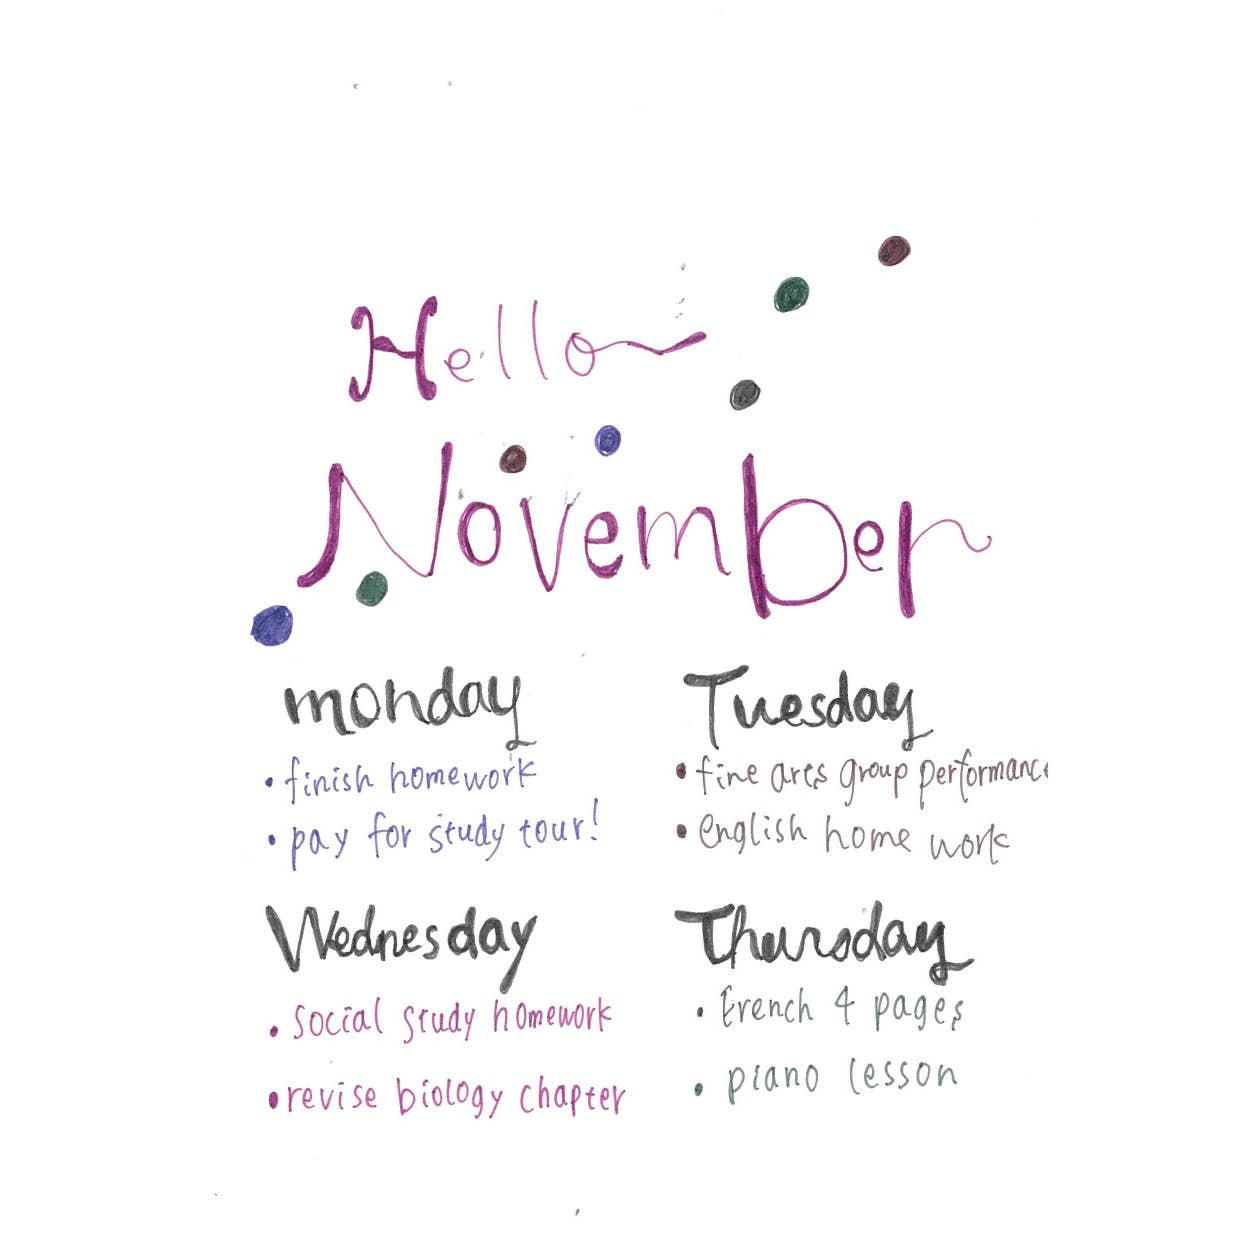 Hello
November
monday
• finish homework
• pay for study tour!
Tuesday
• fine arts group performance
• english home work
Wednesday
• Social study homework
• revise biology chapter
Thursday
• French 4 pages
• piano lesson